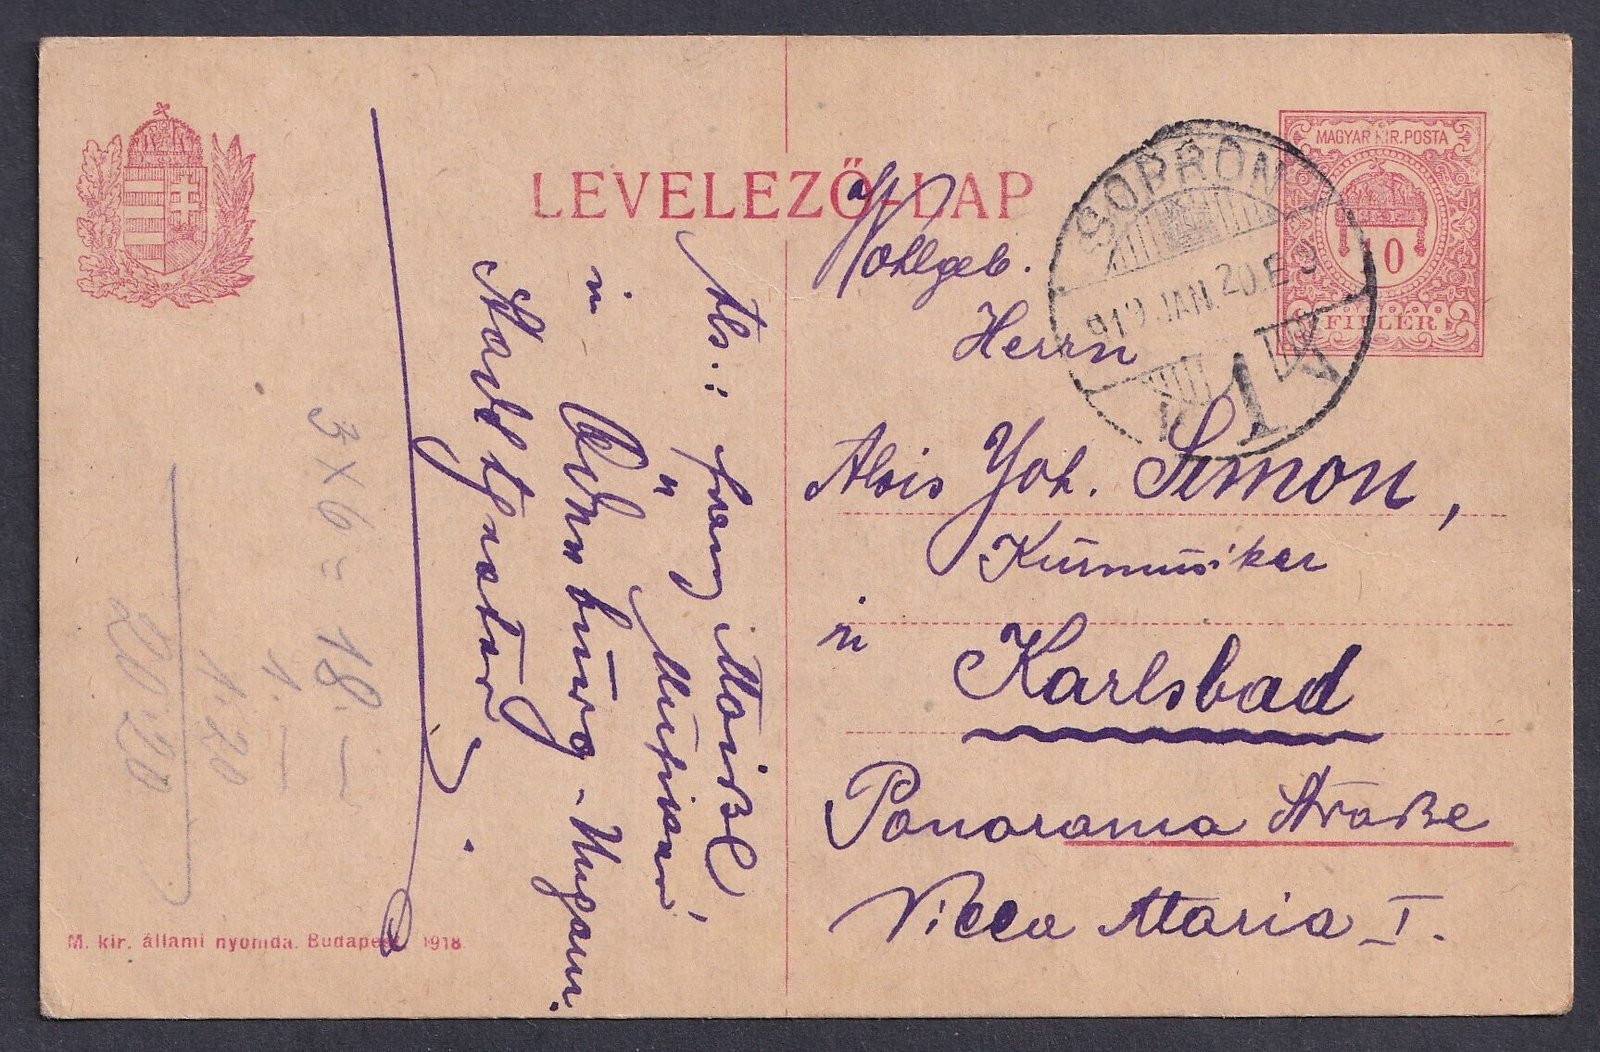 LEVELEZŐ-LAP
MAGYAR KIR. POSTA
10
FILLÉR
SOPRON
919 JAN. 20. E 9
Wohlgeb.
Herrn
Alois Joh. Simon,
Kurmusiker
in
Karlsbad
Panorama Straße
Villa Maria I.
Abs.: Franz
Musiker
in Ödenburg - Ungarn.
Stadttheater.
3 X 6 = 18. —
1. —
1.20
20 20
M. kir. állami nyomda. Budapest 1918